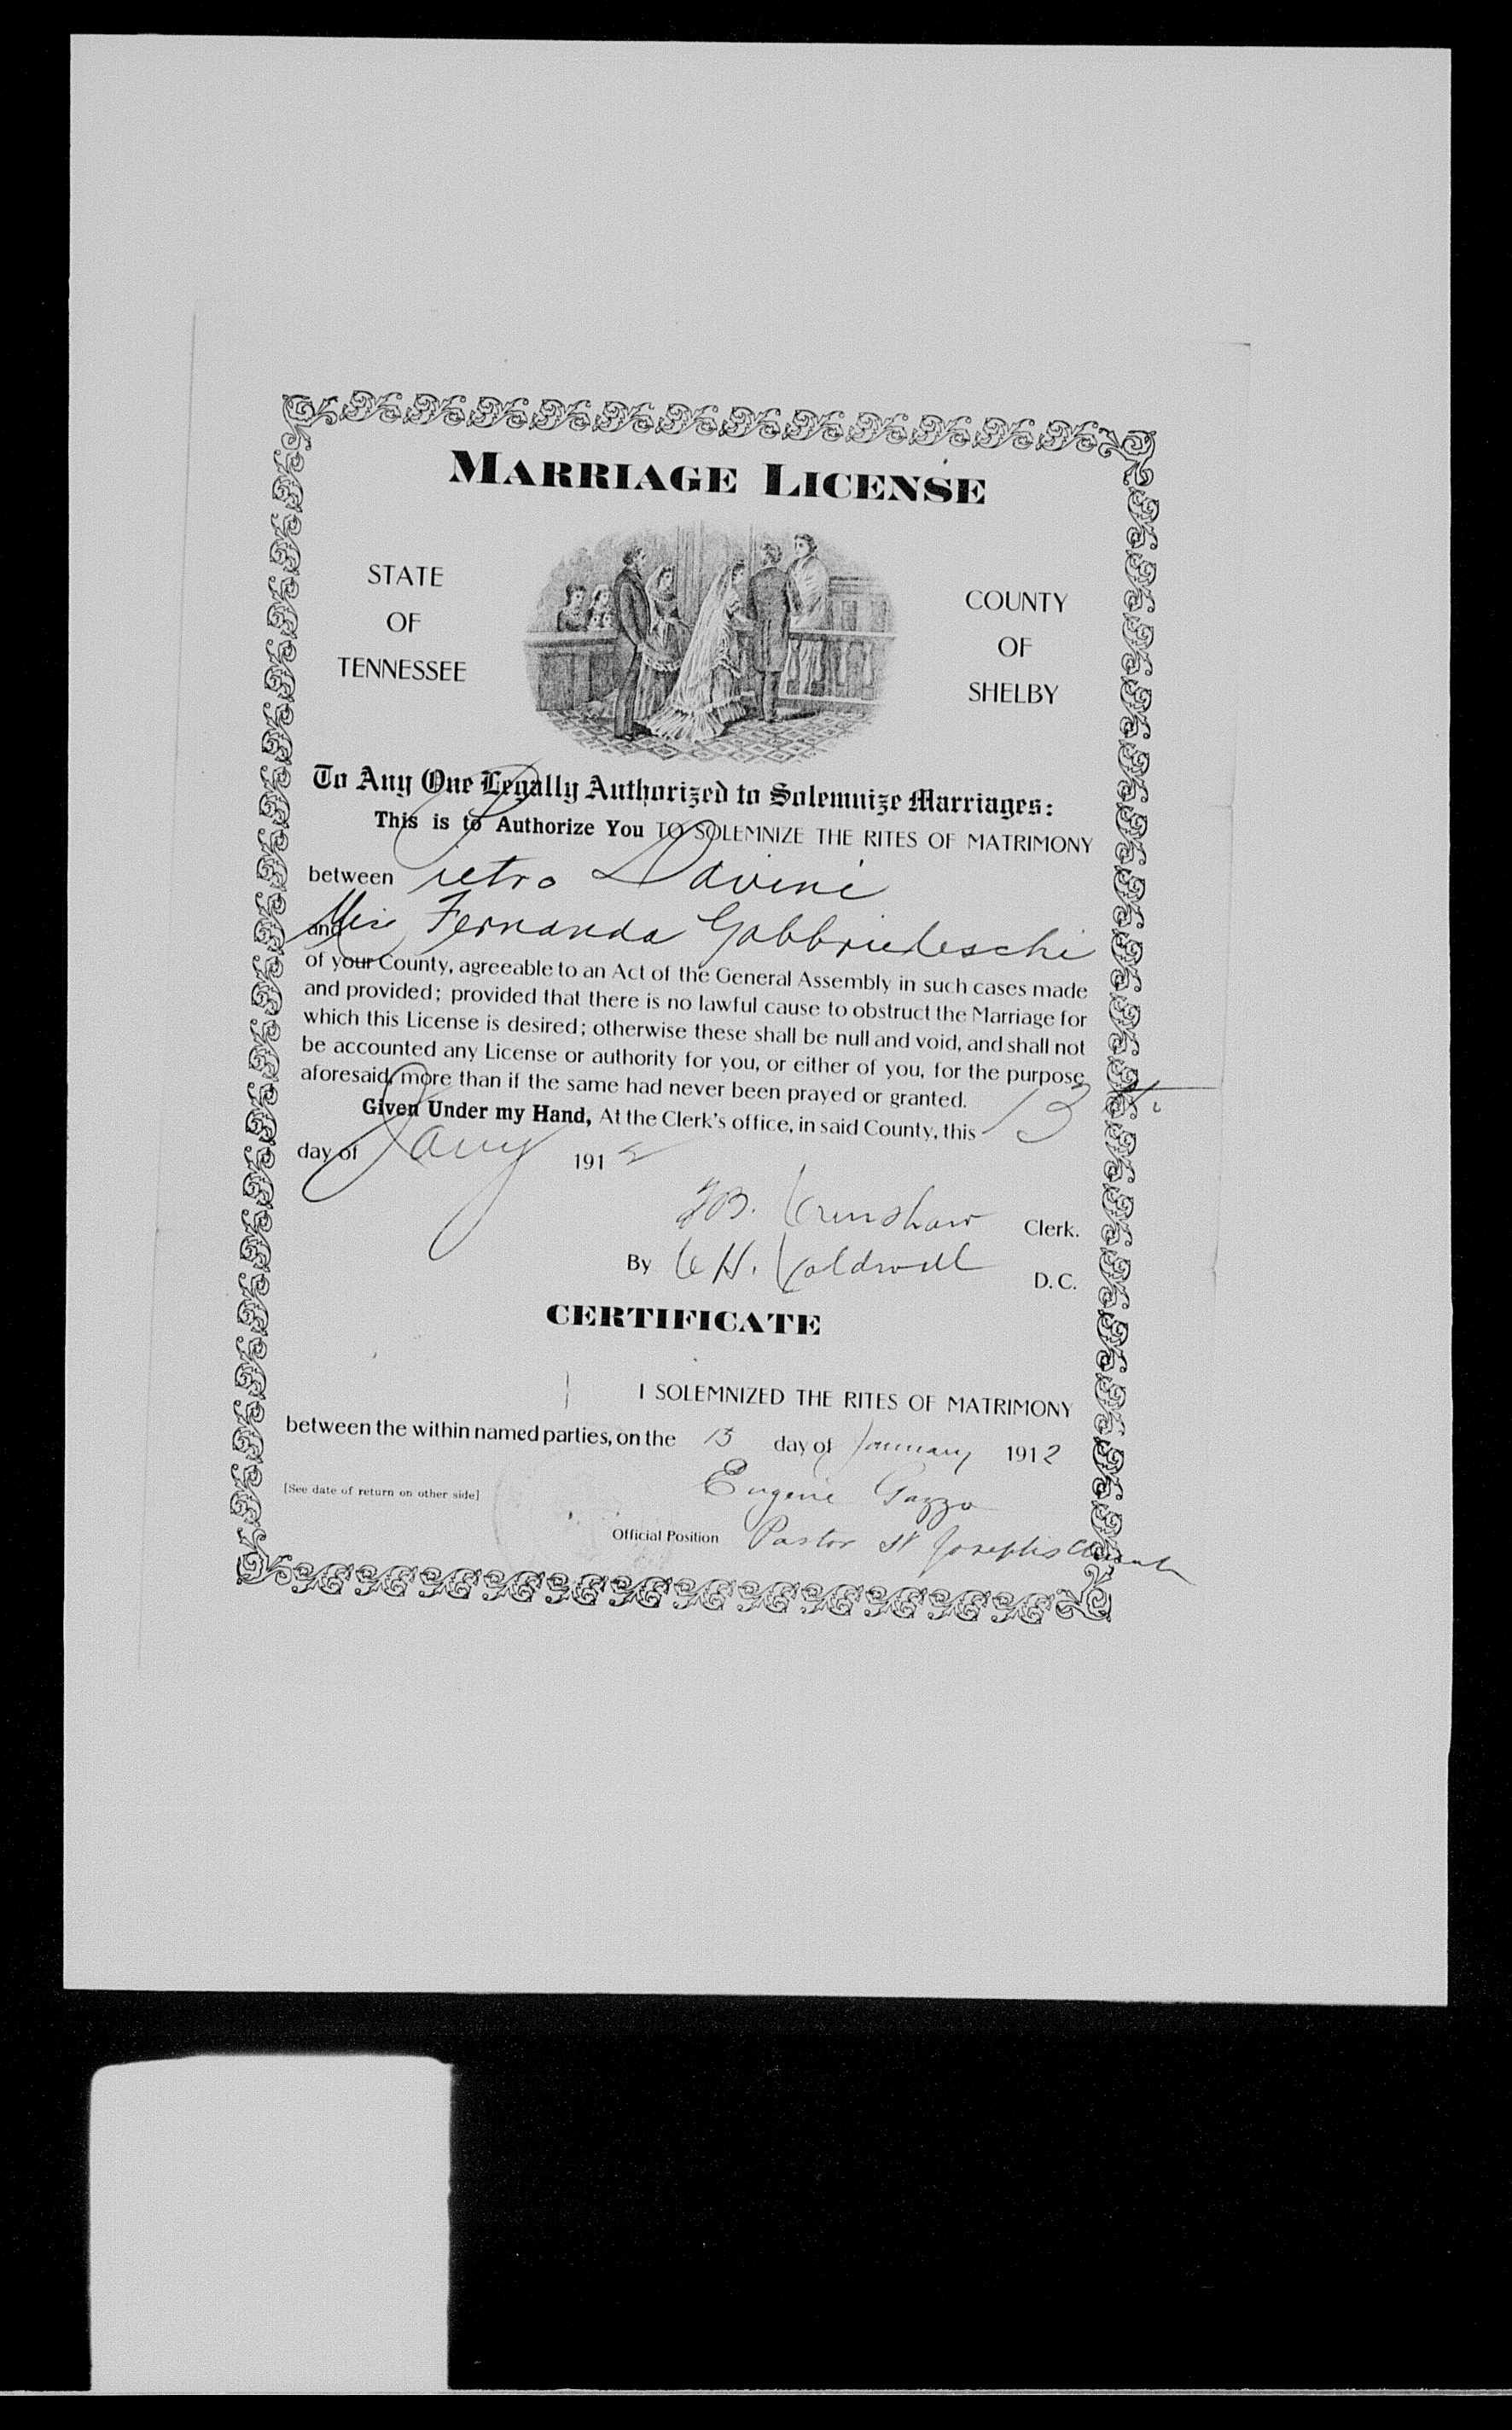 MARRIAGE LICENSE
STATE
OF
TENNESSEE
COUNTY
OF
SHELBY
To Any One Legally Authorized to Solemnize Marriages:
This is to Authorize You TO SOLEMNIZE THE RITES OF MATRIMONY
between Pietro Davini
and Miss Fernanda Gabbrielleschi
of your County, agreeable to an Act of the General Assembly in such cases made
and provided; provided that there is no lawful cause to obstruct the Marriage for
which this License is desired; otherwise these shall be null and void, and shall not
be accounted any License or authority for you, or either of you, for the purpose
aforesaid, more than if the same had never been prayed or granted.
Given Under my Hand, At the Clerk's office, in said County, this 13
day of Jany 1912
J.B. Crenshaw Clerk.
By C H. Caldwell D. C.
CERTIFICATE
I SOLEMNIZED THE RITES OF MATRIMONY
between the within named parties, on the 13 day of January 1912
Eugene Gazzo
[See date of return on other side]
Official Position Pastor St Josephs Church